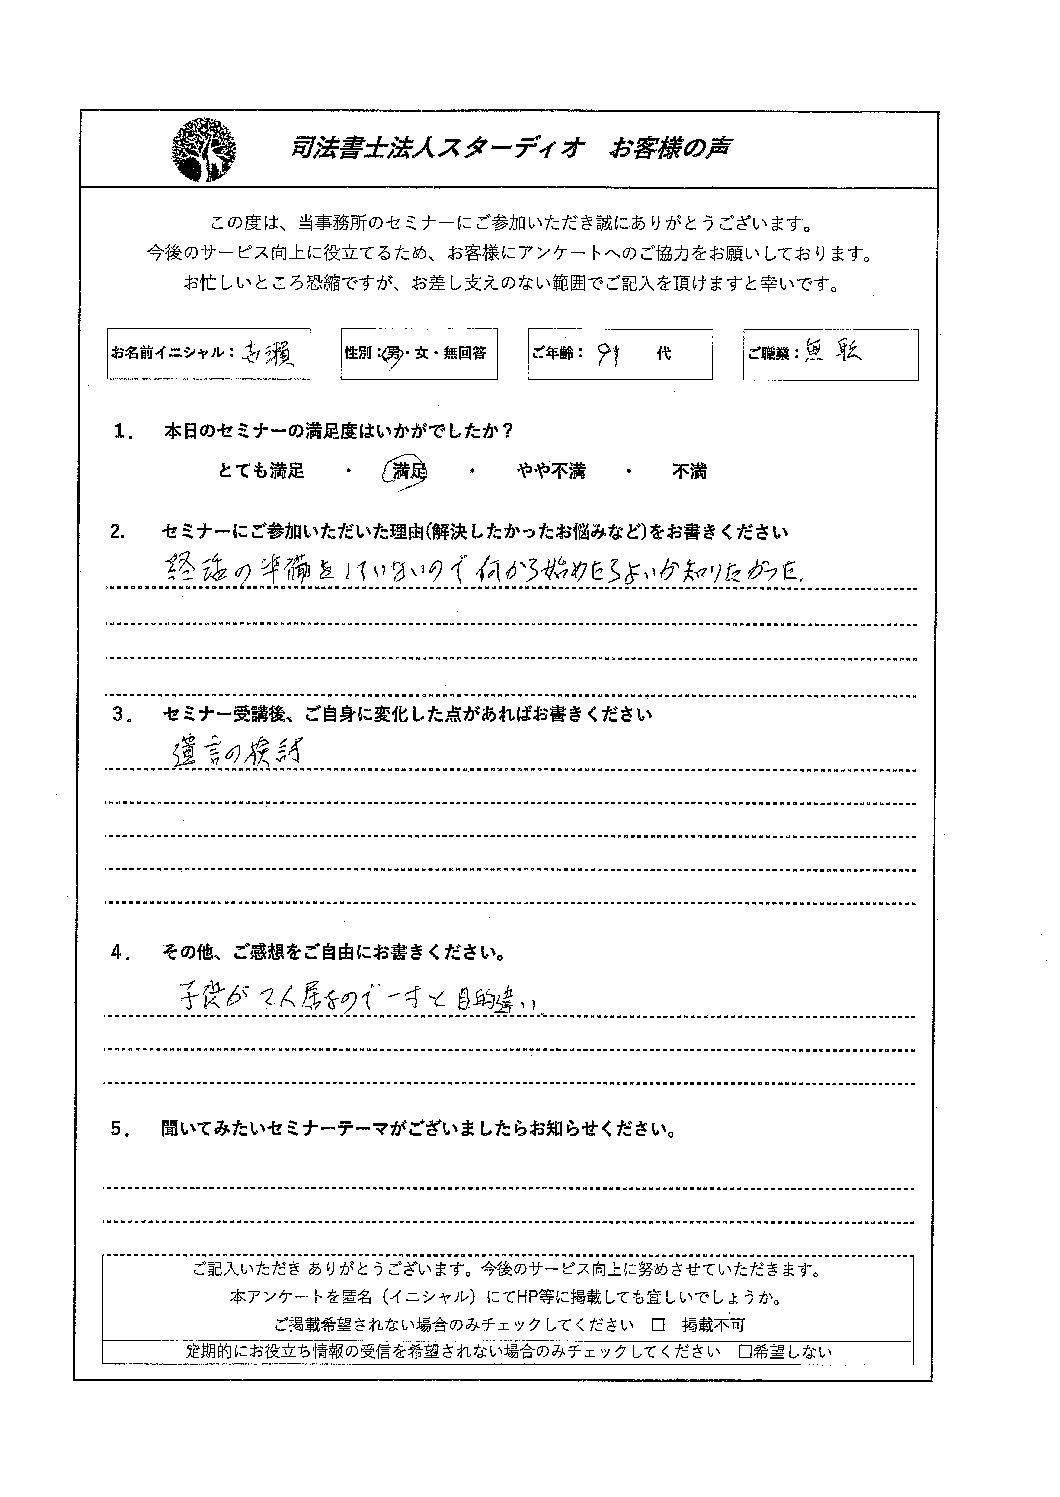 司法書士法人スターディオ　お客様の声
この度は、当事務所のセミナーにご参加いただき誠にありがとうございます。
今後のサービス向上に役立てるため、お客様にアンケートへのご協力をお願いしております。
お忙しいところ恐縮ですが、お差し支えのない範囲でご記入を頂けますと幸いです。
お名前イニシャル： 瀬　性別：男・女・無回答　ご年齢：　代　ご職業：無職
1．　本日のセミナーの満足度はいかがでしたか？
とても満足　・　満足　・　やや不満　・　不満
2．　セミナーにご参加いただいた理由(解決したかったお悩みなど)をお書きください
の準備をしていないので何から始めたらよいか知りたかった.
3．　セミナー受講後、ご自身に変化した点があればお書きください
遺言の検討
4．　その他、ご感想をご自由にお書きください。
子供が 2人居るので一寸と目的違い
5．　聞いてみたいセミナーテーマがございましたらお知らせください。
ご記入いただき ありがとうございます。今後のサービス向上に努めさせていただきます。
本アンケートを匿名（イニシャル）にてHP等に掲載しても宜しいでしょうか。
ご掲載希望されない場合のみチェックしてください　□　掲載不可
定期的にお役立ち情報の受信を希望されない場合のみチェックしてください　□希望しない